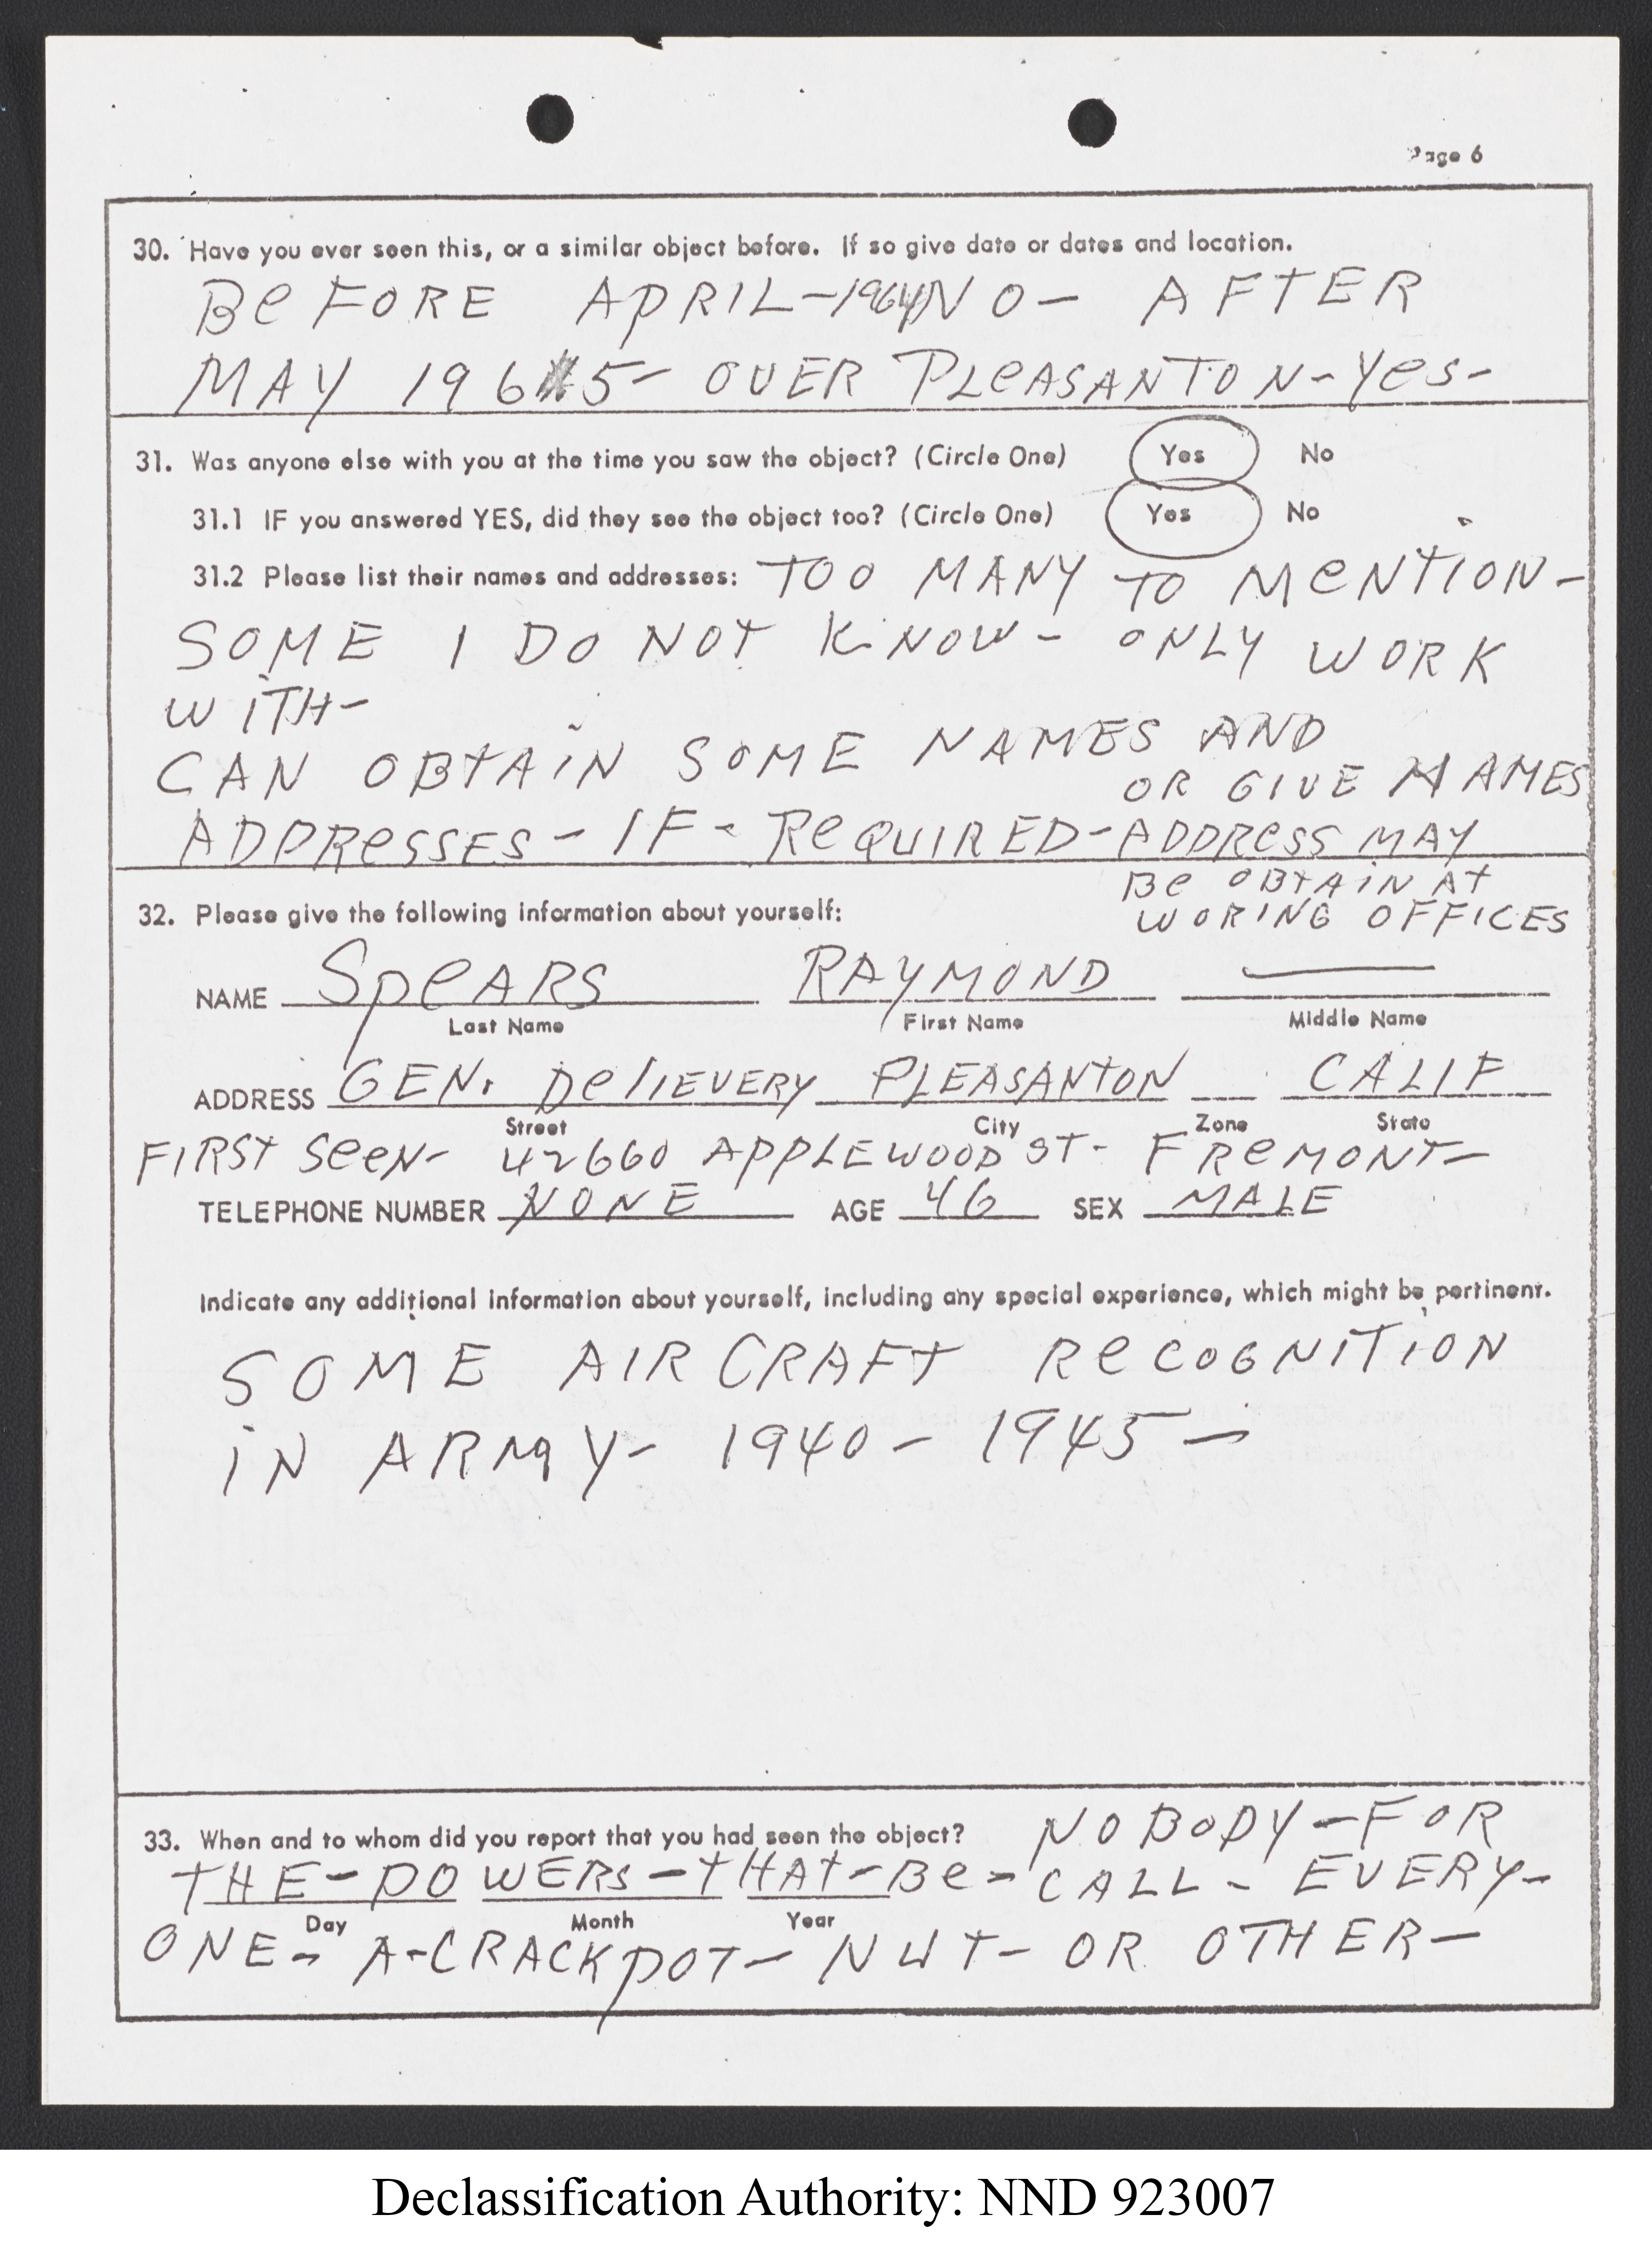 Page 6
30. Have you ever seen this, or a similar object before. If so give date or dates and location.
BEFORE APRIL-1964 NO- AFTER
MAY 1965- OVER PLEASANTON-YES-
31. Was anyone else with you at the time you saw the object? (Circle One) Yes No
31.1 IF you answered YES, did they see the object too? (Circle One) Yes No
31.2 Please list their names and addresses: TOO MANY TO MENTION-
SOME I DO NOT KNOW- ONLY WORK
WITH-
CAN OBTAIN SOME NAMES AND
OR GIVE NAMES
ADDRESSES- IF- REQUIRED- ADDRESS MAY
BE OBTAIN AT
WORING OFFICES
32. Please give the following information about yourself:
NAME SPEARS RAYMOND —
Last Name First Name Middle Name
ADDRESS GEN. DELIEVERY PLEASANTON CALIF
Street City Zone State
FIRST SEEN- 42660 APPLEWOOD ST- FREMONT-
TELEPHONE NUMBER NONE AGE 46 SEX MALE
Indicate any additional information about yourself, including any special experience, which might be pertinent.
SOME AIRCRAFT RECOGNITION
IN ARMY- 1940- 1945-
33. When and to whom did you report that you had seen the object? NOBODY-FOR
THE-POWERS-THAT-BE-CALL- EVERY-
Day Month Year
ONE- A-CRACKPOT- NUT- OR OTHER-
Declassification Authority: NND 923007